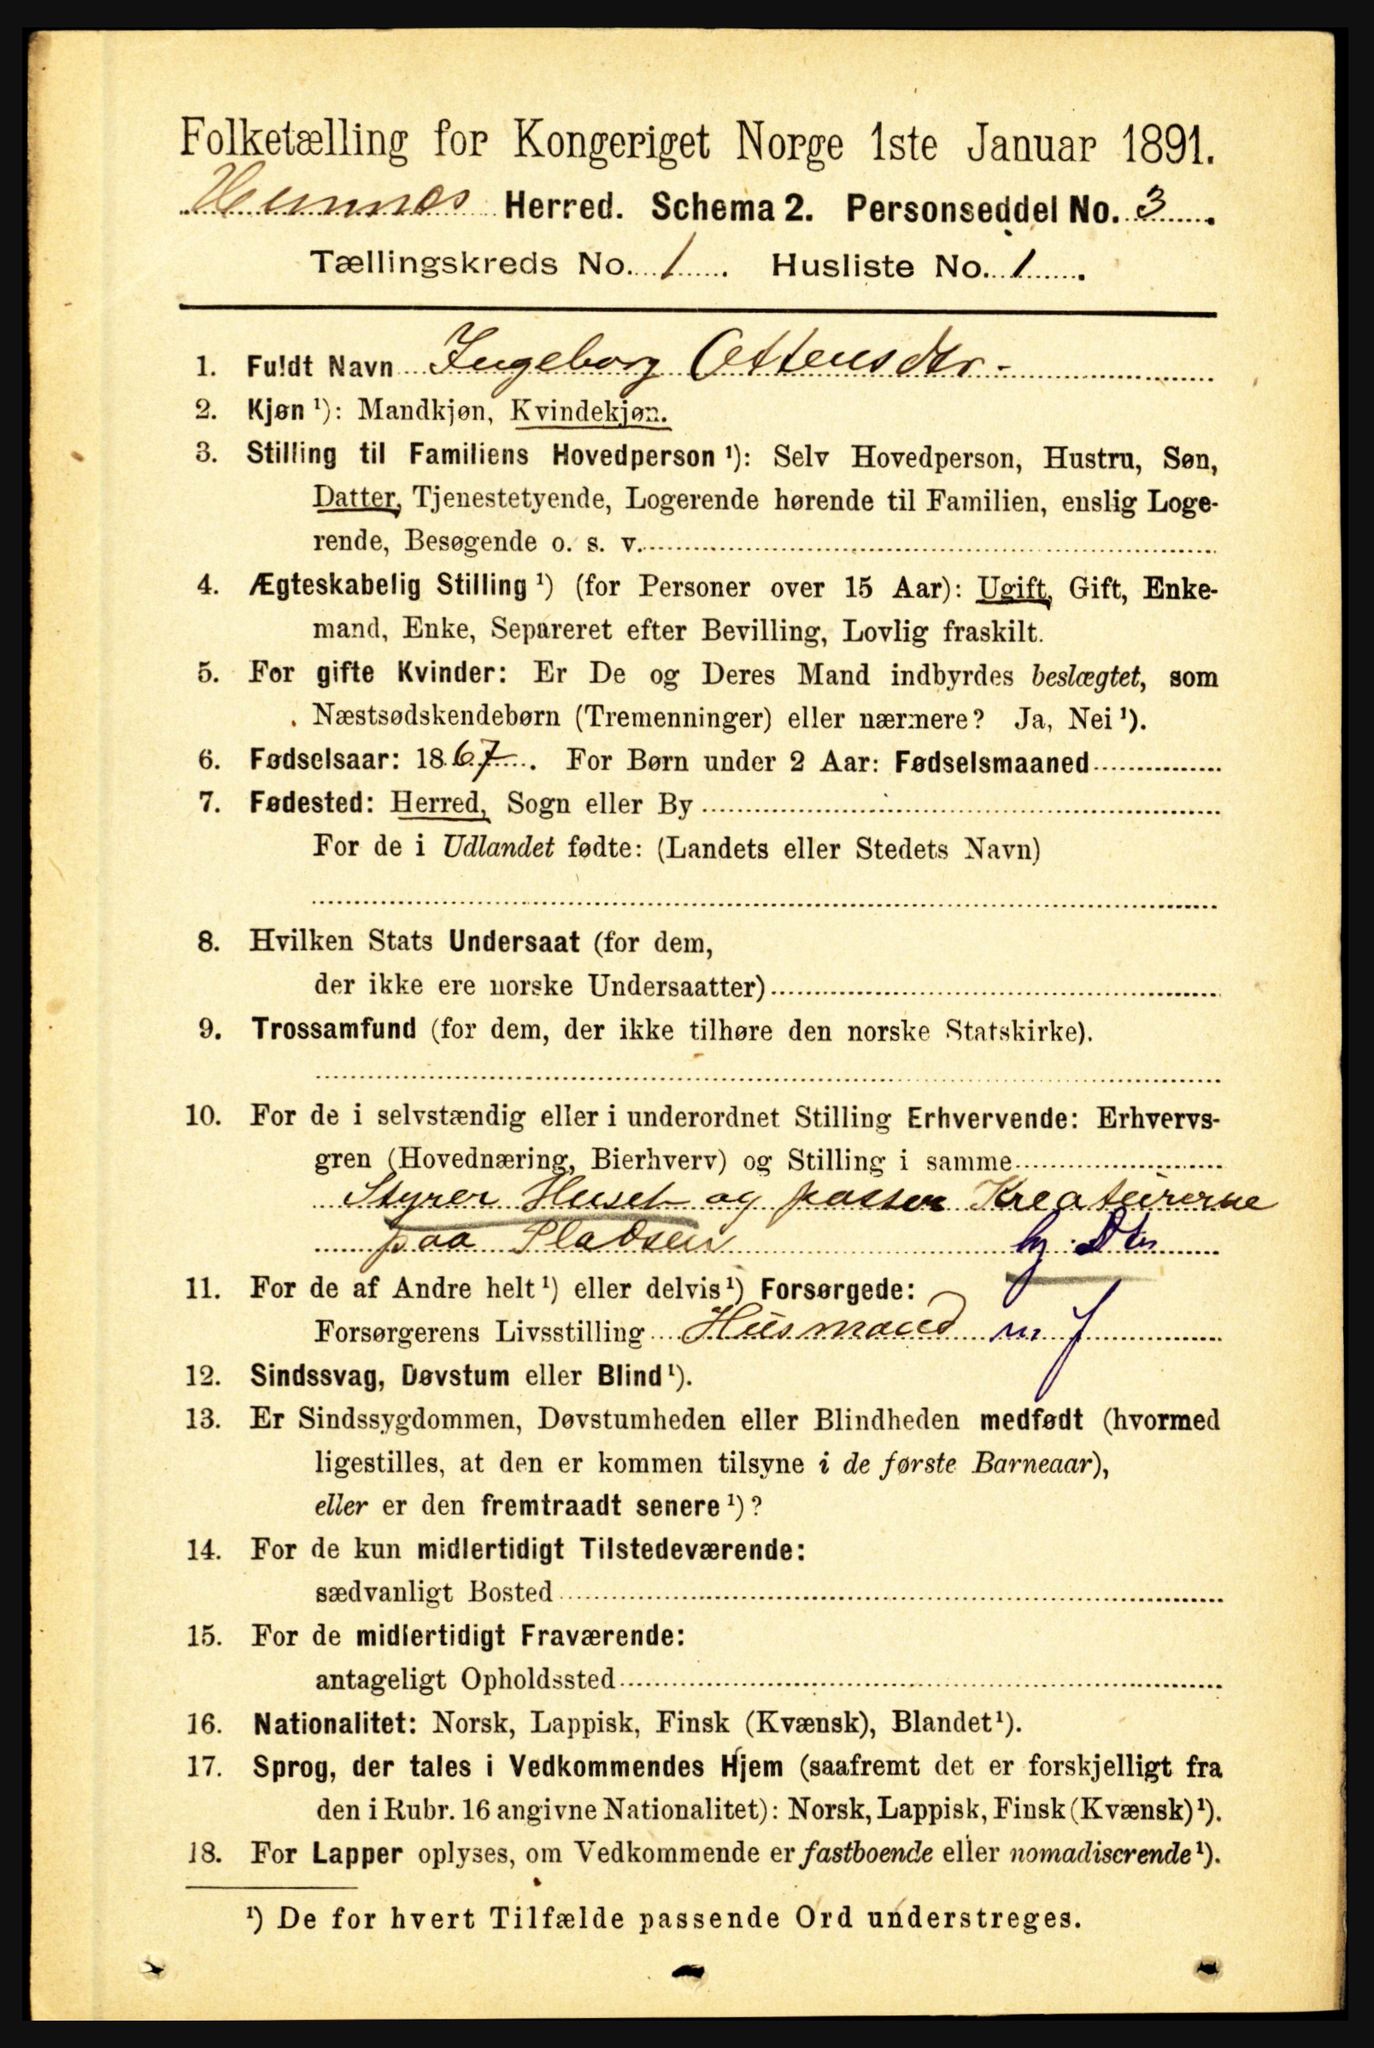 Folketælling for Kongeriget Norge 1ste Januar 1891.
Hemnæs Herred. Schema 2. Personseddel No. 3.
Tællingskreds No. 1. Husliste No. 1.
1. Fuldt Navn Ingeborg Ottensdtr.
2. Kjøn ¹): Mandkjøn, Kvindekjøn.
3. Stilling til Familiens Hovedperson ¹): Selv Hovedperson, Hustru, Søn,
Datter, Tjenestetyende, Logerende hørende til Familien, enslig Loge-
rende, Besøgende o. s. v.
4. Ægteskabelig Stilling ¹) (for Personer over 15 Aar): Ugift, Gift, Enke-
mand, Enke, Separeret efter Bevilling, Lovlig fraskilt.
5. For gifte Kvinder: Er De og Deres Mand indbyrdes beslægtet, som
Næstsødskendebørn (Tremenninger) eller nærmere? Ja, Nei ¹).
6. Fødselsaar: 1867. For Børn under 2 Aar: Fødselsmaaned
7. Fødested: Herred, Sogn eller By
For de i Udlandet fødte: (Landets eller Stedets Navn)
8. Hvilken Stats Undersaat (for dem,
der ikke ere norske Undersaatter)
9. Trossamfund (for dem, der ikke tilhøre den norske Statskirke).
10. For de i selvstændig eller i underordnet Stilling Erhvervende: Erhvervs-
gren (Hovednæring, Bierhverv) og Stilling i samme
Styrer Huset og passer Kreaturerne
paa Pladsen
11. For de af Andre helt ¹) eller delvis ¹) Forsørgede:
Forsørgerens Livsstilling Husmand m j
12. Sindssvag, Døvstum eller Blind ¹).
13. Er Sindssygdommen, Døvstumheden eller Blindheden medfødt (hvormed
ligestilles, at den er kommen tilsyne i de første Barneaar),
eller er den fremtraadt senere ¹)?
14. For de kun midlertidigt Tilstedeværende:
sædvanligt Bosted
15. For de midlertidigt Fraværende:
antageligt Opholdssted
16. Nationalitet: Norsk, Lappisk, Finsk (Kvænsk), Blandet ¹).
17. Sprog, der tales i Vedkommendes Hjem (saafremt det er forskjelligt fra
den i Rubr. 16 angivne Nationalitet): Norsk, Lappisk, Finsk (Kvænsk) ¹).
18. For Lapper oplyses, om Vedkommende er fastboende eller nomadiserende ¹).
¹) De for hvert Tilfælde passende Ord understreges.